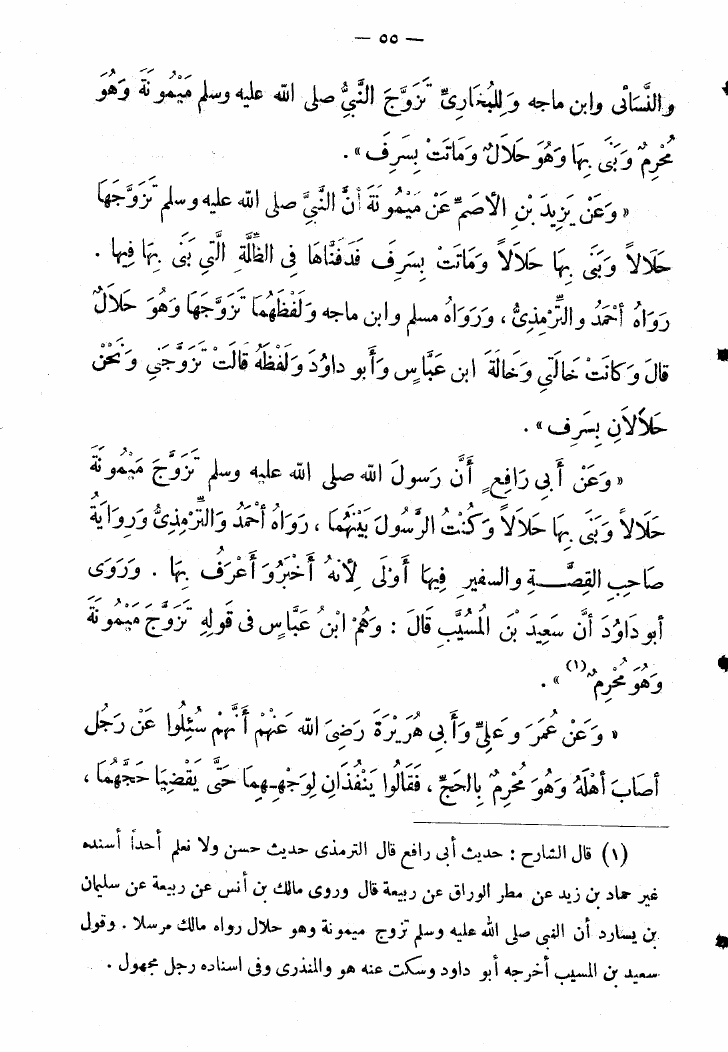 — ٥٥ —
والنَّسَائى وابن ماجه وَلِلبُخَارِىِّ تَزَوَّجَ النَّبِىُّ صلى الله عليه وسلم مَيْمُونَةَ وَهُوَ
مُحْرِمٌ وَبَنَى بِهَا وَهُوَ حَلَالٌ وَمَاتَتْ بِسَرِف » .
« وَعَنْ يَزِيدَ بْنِ الأَصَمِّ عَنْ مَيْمُونَةَ أَنَّ النَّبِىَّ صلى الله عليه وسلم تَزَوَّجَهَا
حَلَالاً وَبَنَى بِهَا حَلَالاً وَمَاتَتْ بِسَرِف فَدَفَنَّاهَا فى الظُّلَّةِ الَّتِى بَنَى بِهَا فِيهَا .
رَوَاهُ أَحْمَدُ والتِّرْمِذِىُّ ، وَرَوَاهُ مسلم وابن ماجه وَلَفْظُهُمَا تَزَوَّجَهَا وَهُوَ حَلَالٌ
قالَ وَكَانَتْ خَالَتِى وَخَالَةَ ابن عَبَّاسٍ وَأَبو داوُدَ وَلَفْظُهُ قالَتْ تَزَوَّجَنِى وَنَحْنُ
حَلَالَانِ بِسَرِف » .
« وَعَنْ أَبِى رَافِعٍ أَنَّ رَسولَ الله صلى الله عليه وسلم تَزَوَّجَ مَيْمُونَةَ
حَلَالاً وَبَنَى بِهَا حَلَالاً وَكُنْتُ الرَّسُولَ بَيْنَهُمَا ، رَوَاهُ أَحْمَدُ وَالتِّرْمِذِىُّ وَرِوايَةُ
صَاحِبِ القِصَّـــةِ والسفيرِ فِيهَا أَوْلَى لِأَنهُ أَخْبَرُ وَأَعْرَف بِهَا . وَرَوَى
أبو دَاوُدَ أَنَّ سَعِيدَ بْنَ المُسَيَّبِ قَالَ : وَهُمَ ابْنُ عَبَّاسٍ فى قَوْلِهِ تَزَوَّجَ مَيْمُونَةَ
وَهُوَ مُحْرِمٌ (١) » .
« وَعَنْ عُمَرَ وَعَلِىٍّ وَأَبِى هُرَيْرَةَ رَضِىَ الله عَنهُمْ أَنَّهُمْ سُئِلُوا عَنْ رَجُل
أَصَابَ أَهْلَهُ وَهُوَ مُحْرِمٌ بِالحَجِّ ، فَقَالُوا يَنْفُذَانِ لِوَجْهِـهِمَا حَتَّى يَقْضِيَا حَجَّهُمَا ،
(١) قال الشارح : حديث أبى رافع قال الترمذى حديث حسن ولا نعلم أحداً أسنده
غير حماد بن زيد عن مطر الوراق عن ربيعة قال وروى مالك بن أنس عن ربيعة عن سليمان
بن يسارد أن النبى صلى الله عليه وسلم تزوج ميمونة وهو حلال رواه مالك مرسلا . وقول
سعيد بن المسيب أخرجه أبو داود وسكت عنه هو والمنذرى وفى اسناده رجل مجهول .